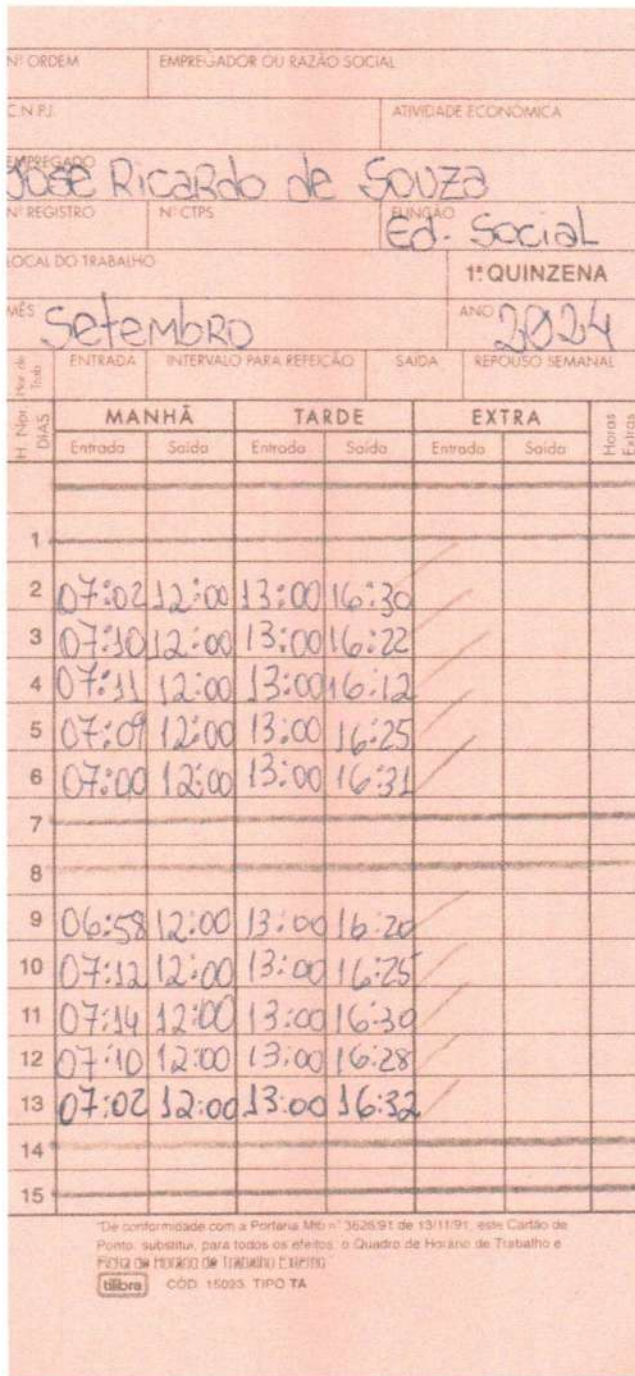 Nº ORDEM EMPREGADOR OU RAZÃO SOCIAL
C.N.P.J. ATIVIDADE ECONÔMICA
EMPREGADO
José Ricardo de Souza
Nº REGISTRO Nº CTPS FUNÇÃO
Ed. Social
LOCAL DO TRABALHO
1ª QUINZENA
MÊS Setembro ANO 2024
Hor de Trab ENTRADA INTERVALO PARA REFEIÇÃO SAÍDA REPOUSO SEMANAL
H. Nor. DIAS MANHÃ TARDE EXTRA Horas Extras
Entrada Saída Entrada Saída Entrada Saída
1
2 07:02 12:00 13:00 16:30
3 07:10 12:00 13:00 16:22
4 07:11 12:00 13:00 16:12
5 07:09 12:00 13:00 16:25
6 07:00 12:00 13:00 16:31
7
8
9 06:58 12:00 13:00 16:20
10 07:12 12:00 13:00 16:25
11 07:14 12:00 13:00 16:30
12 07:10 12:00 13:00 16:28
13 07:02 12:00 13:00 16:32
14
15
"De conformidade com a Portaria Mtb nº 3626/91 de 13/11/91, este Cartão de
Ponto, substitui, para todos os efeitos, o Quadro de Horário de Trabalho e
Ficha de Horário de Trabalho Externo"
tilibra CÓD. 15093. TIPO TA